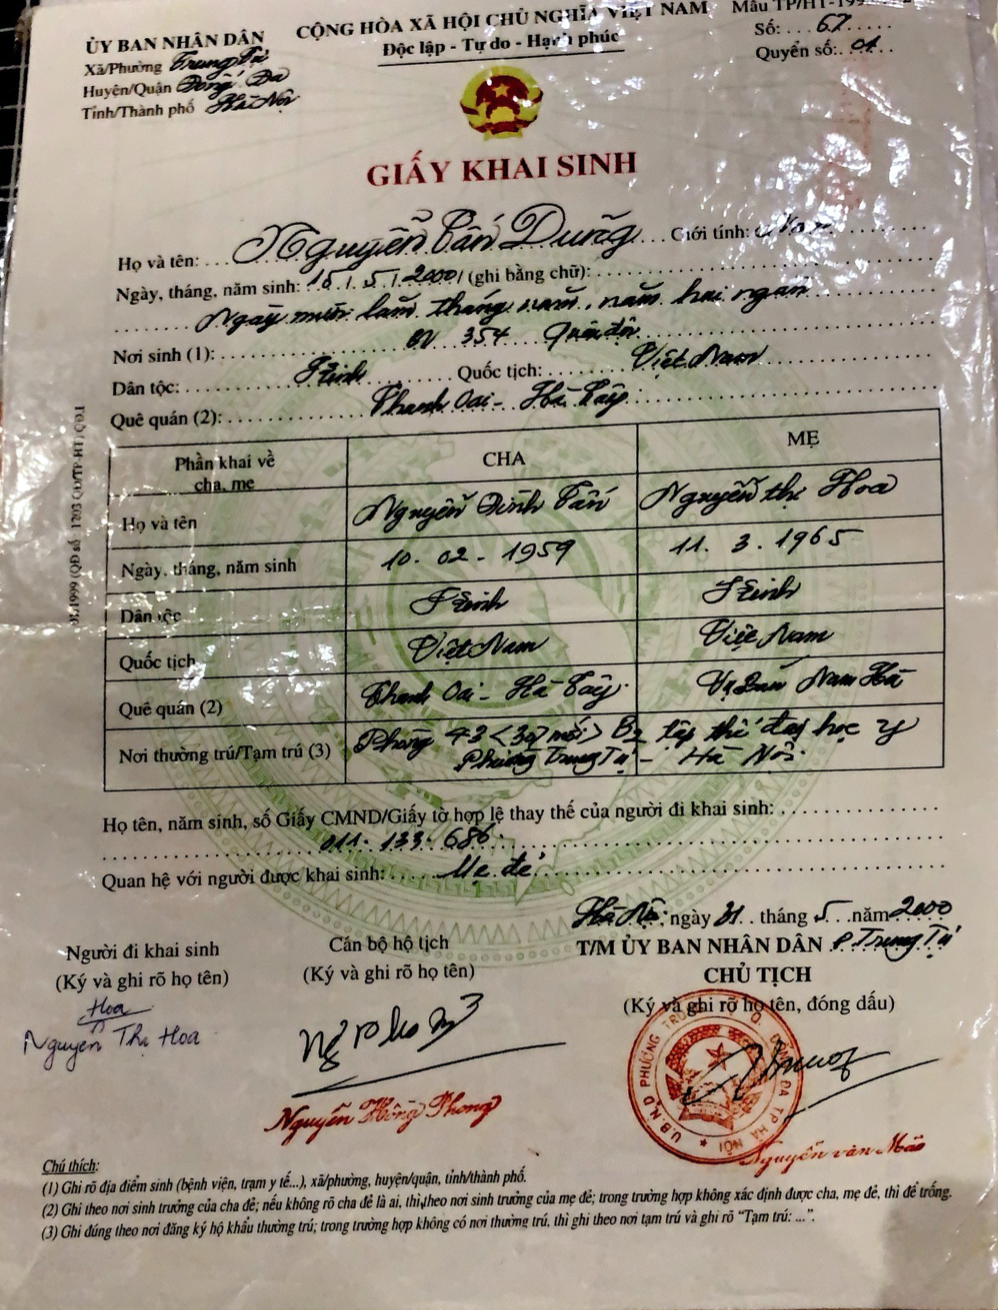 CỘNG HÒA XÃ HỘI CHỦ NGHĨA VIỆT NAM
Độc lập - Tự do - Hạnh phúc
Mẫu TP/HT-199
Số: 67
Quyển số: 01
ỦY BAN NHÂN DÂN
Xã/Phường Trung Tự
Huyện/Quận Đống Đa
Tỉnh/Thành phố Hà Nội
GIẤY KHAI SINH
Họ và tên: Nguyễn Tấn Dũng Giới tính: Nam
Ngày, tháng, năm sinh: 15/5/2000 (ghi bằng chữ):
Ngày mười lăm tháng năm, năm hai ngàn
Nơi sinh (1): BV 354 Quân đội
Dân tộc: Kinh Quốc tịch: Việt Nam
Quê quán (2): Thanh Oai - Hà Tây
Phần khai về cha, mẹ CHA MẸ
Họ và tên Nguyễn Đình Tấn Nguyễn thị Hoa
Ngày, tháng, năm sinh 10. 02 - 1959 11. 3. 1965
Dân tộc Kinh Kinh
Quốc tịch Việt Nam Việt Nam
Quê quán (2) Thanh Oai - Hà Tây Vụ Bản Nam Hà
Nơi thường trú/Tạm trú (3) Phòng 42 <307 mới> B2 tập thể đại học y
Phường Trung Tự - Hà Nội.
Họ tên, năm sinh, số Giấy CMND/Giấy tờ hợp lệ thay thế của người đi khai sinh:
011. 133. 686.
Quan hệ với người được khai sinh: Mẹ đẻ
Hà Nội, ngày 31 tháng 5 năm 2000
T/M ỦY BAN NHÂN DÂN P. Trung Tự
CHỦ TỊCH
(Ký và ghi rõ họ tên, đóng dấu)
Người đi khai sinh
(Ký và ghi rõ họ tên)
Hoa
Nguyễn Thị Hoa
Cán bộ hộ tịch
(Ký và ghi rõ họ tên)
Nguyễn Hồng Phong
Nguyễn văn Mão
Chú thích:
(1) Ghi rõ địa điểm sinh (bệnh viện, trạm y tế...), xã/phường, huyện/quận, tỉnh/thành phố.
(2) Ghi theo nơi sinh trưởng của cha đẻ; nếu không rõ cha đẻ là ai, thì theo nơi sinh trưởng của mẹ đẻ; trong trường hợp không xác định được cha, mẹ đẻ, thì để trống.
(3) Ghi đúng theo nơi đăng ký hộ khẩu thường trú; trong trường hợp không có nơi thường trú, thì ghi theo nơi tạm trú và ghi rõ “Tạm trú: ...”.